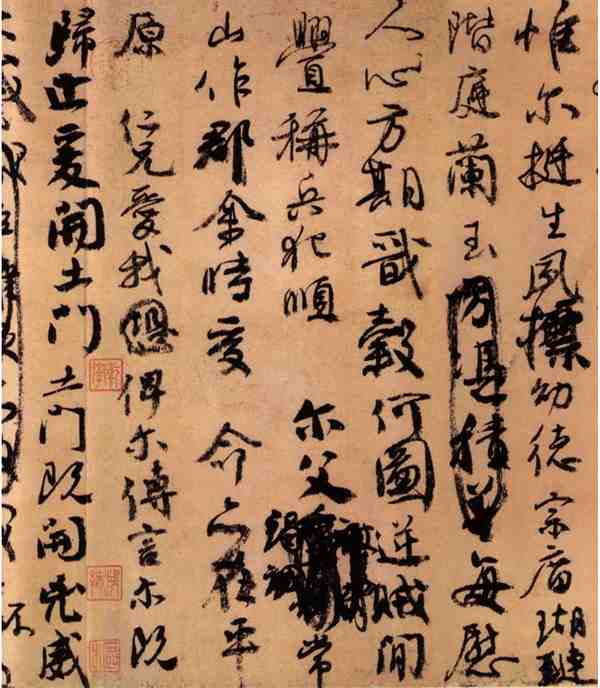 惟尔挺生夙標幼德宗廟瑚璉
階庭蘭玉方憑積善每慰
人心方期戩穀何圖逆賊間
釁稱兵犯順尔父常
山作郡余時受命亦在平
原仁兄愛我恐俾尔傳言尔既
歸止爰開土門土門既開兇威